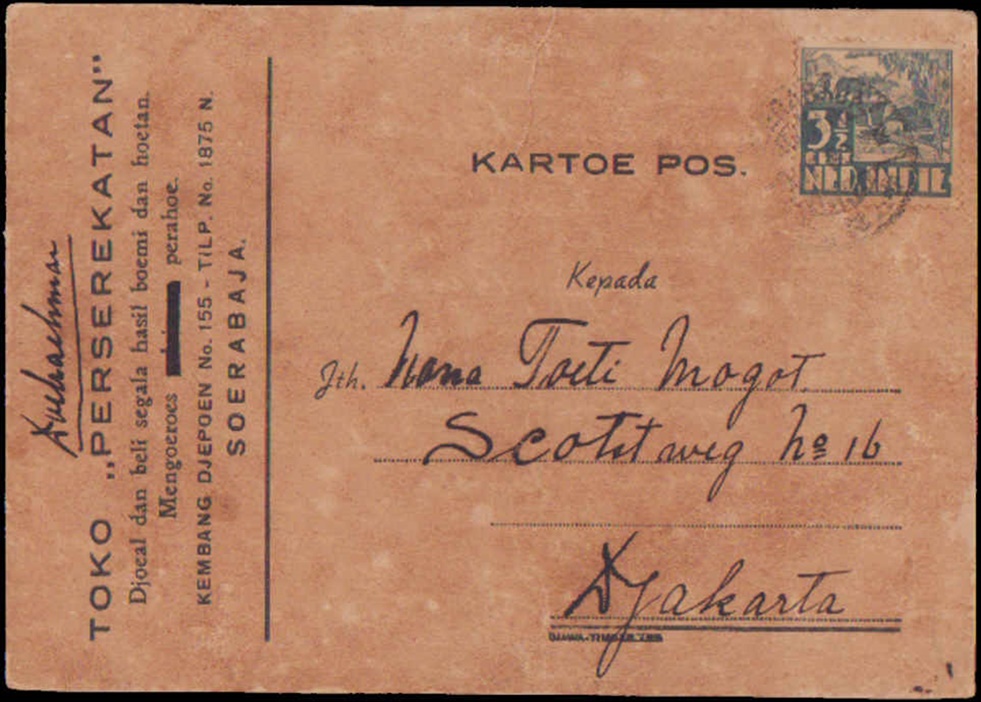 TOKO „PERSEREKATAN"
Djoeal dan beli segala hasil boemi dan hoetan.
Mengoeroes perahoe.
KEMBANG DJEPOEN No. 155 - TILP. No. 1875 N.
SOERABAJA.
KARTOE POS.
3½
CENT
NED. INDIE
Kepada
Jth. Nona Toeti Mogot
Scottweg No 16
Djakarta